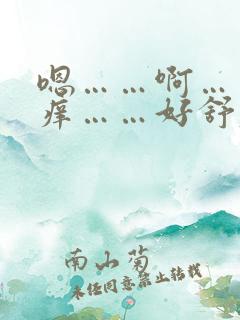 嗯……啊…
痒……好舒
南山菊
未经同意禁止转载